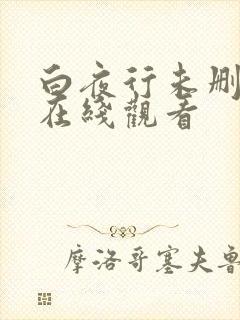 白夜行未删
在线觀看
摩洛哥塞夫魯